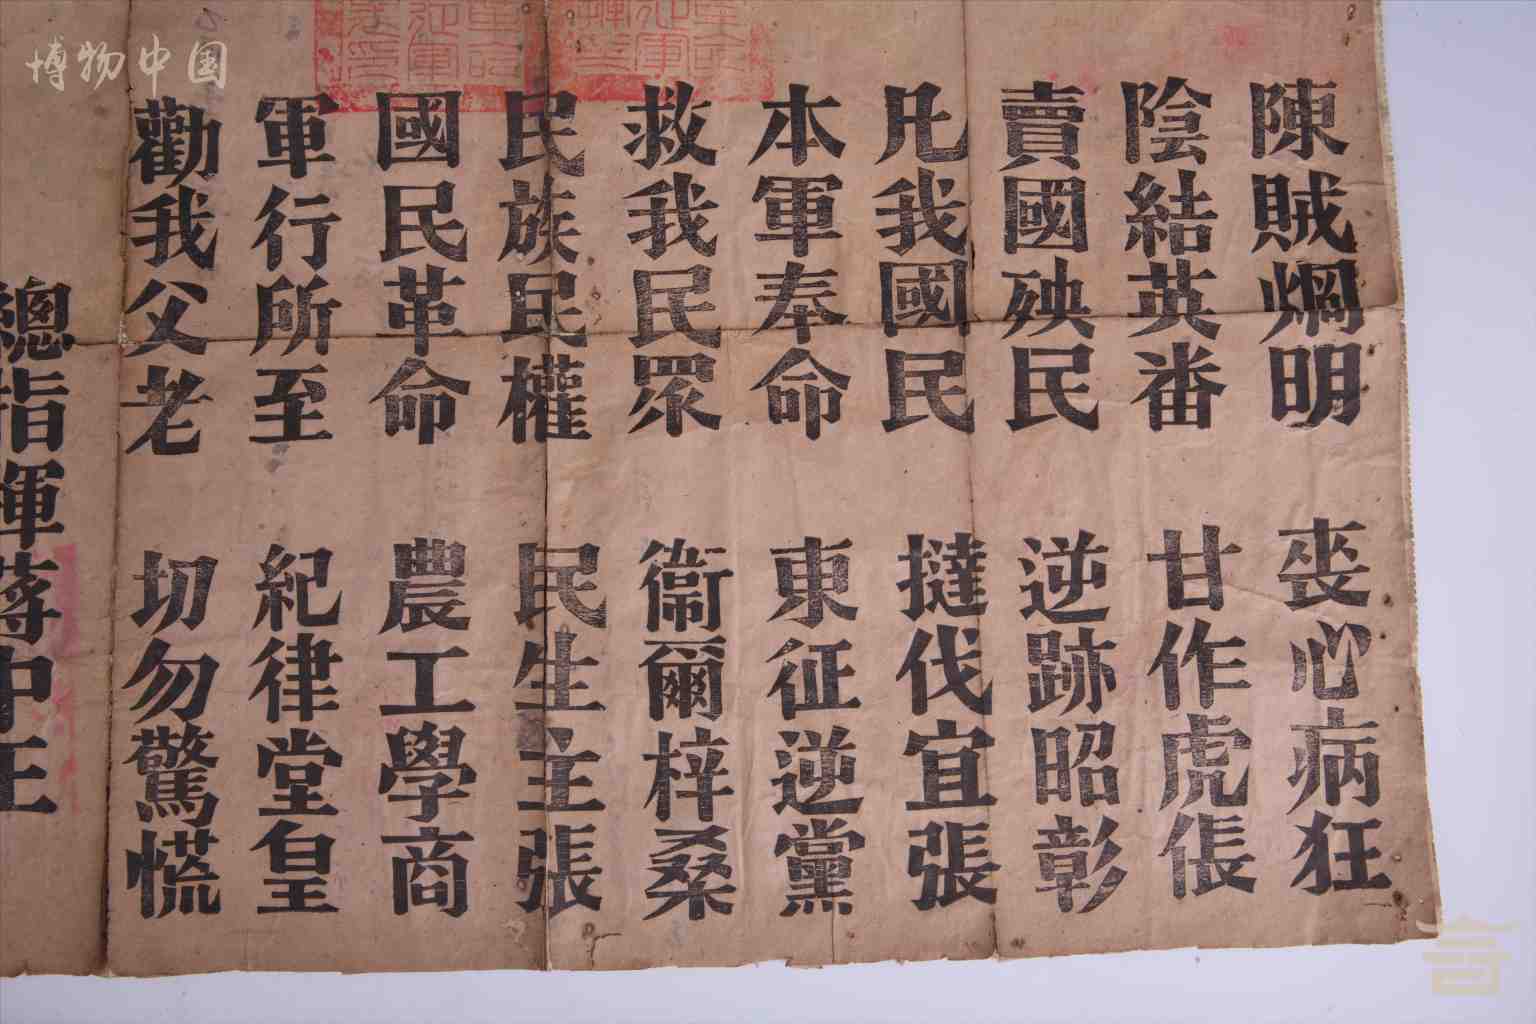 博物中国
陳賊烱明 丧心病狂
陰結英番 甘作虎倀
賣國殃民 逆跡昭彰
凡我國民 撻伐宜張
本軍奉命 東征逆黨
救我民眾 衞爾梓桑
民族民權 民生主張
國民革命 農工學商
軍行所至 紀律堂皇
勸我父老 切勿驚慌
總指揮蔣中正